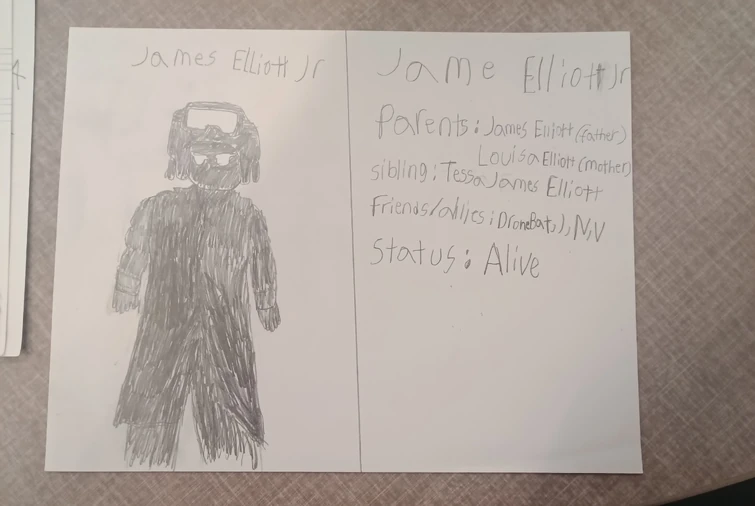 James Elliott Jr
Jame Elliott Jr
Parents: James Elliott (father)
Louisa Elliott (mother)
sibling: Tessa James Elliott
Friends/allies: DroneBat, J, N, V
Status: Alive